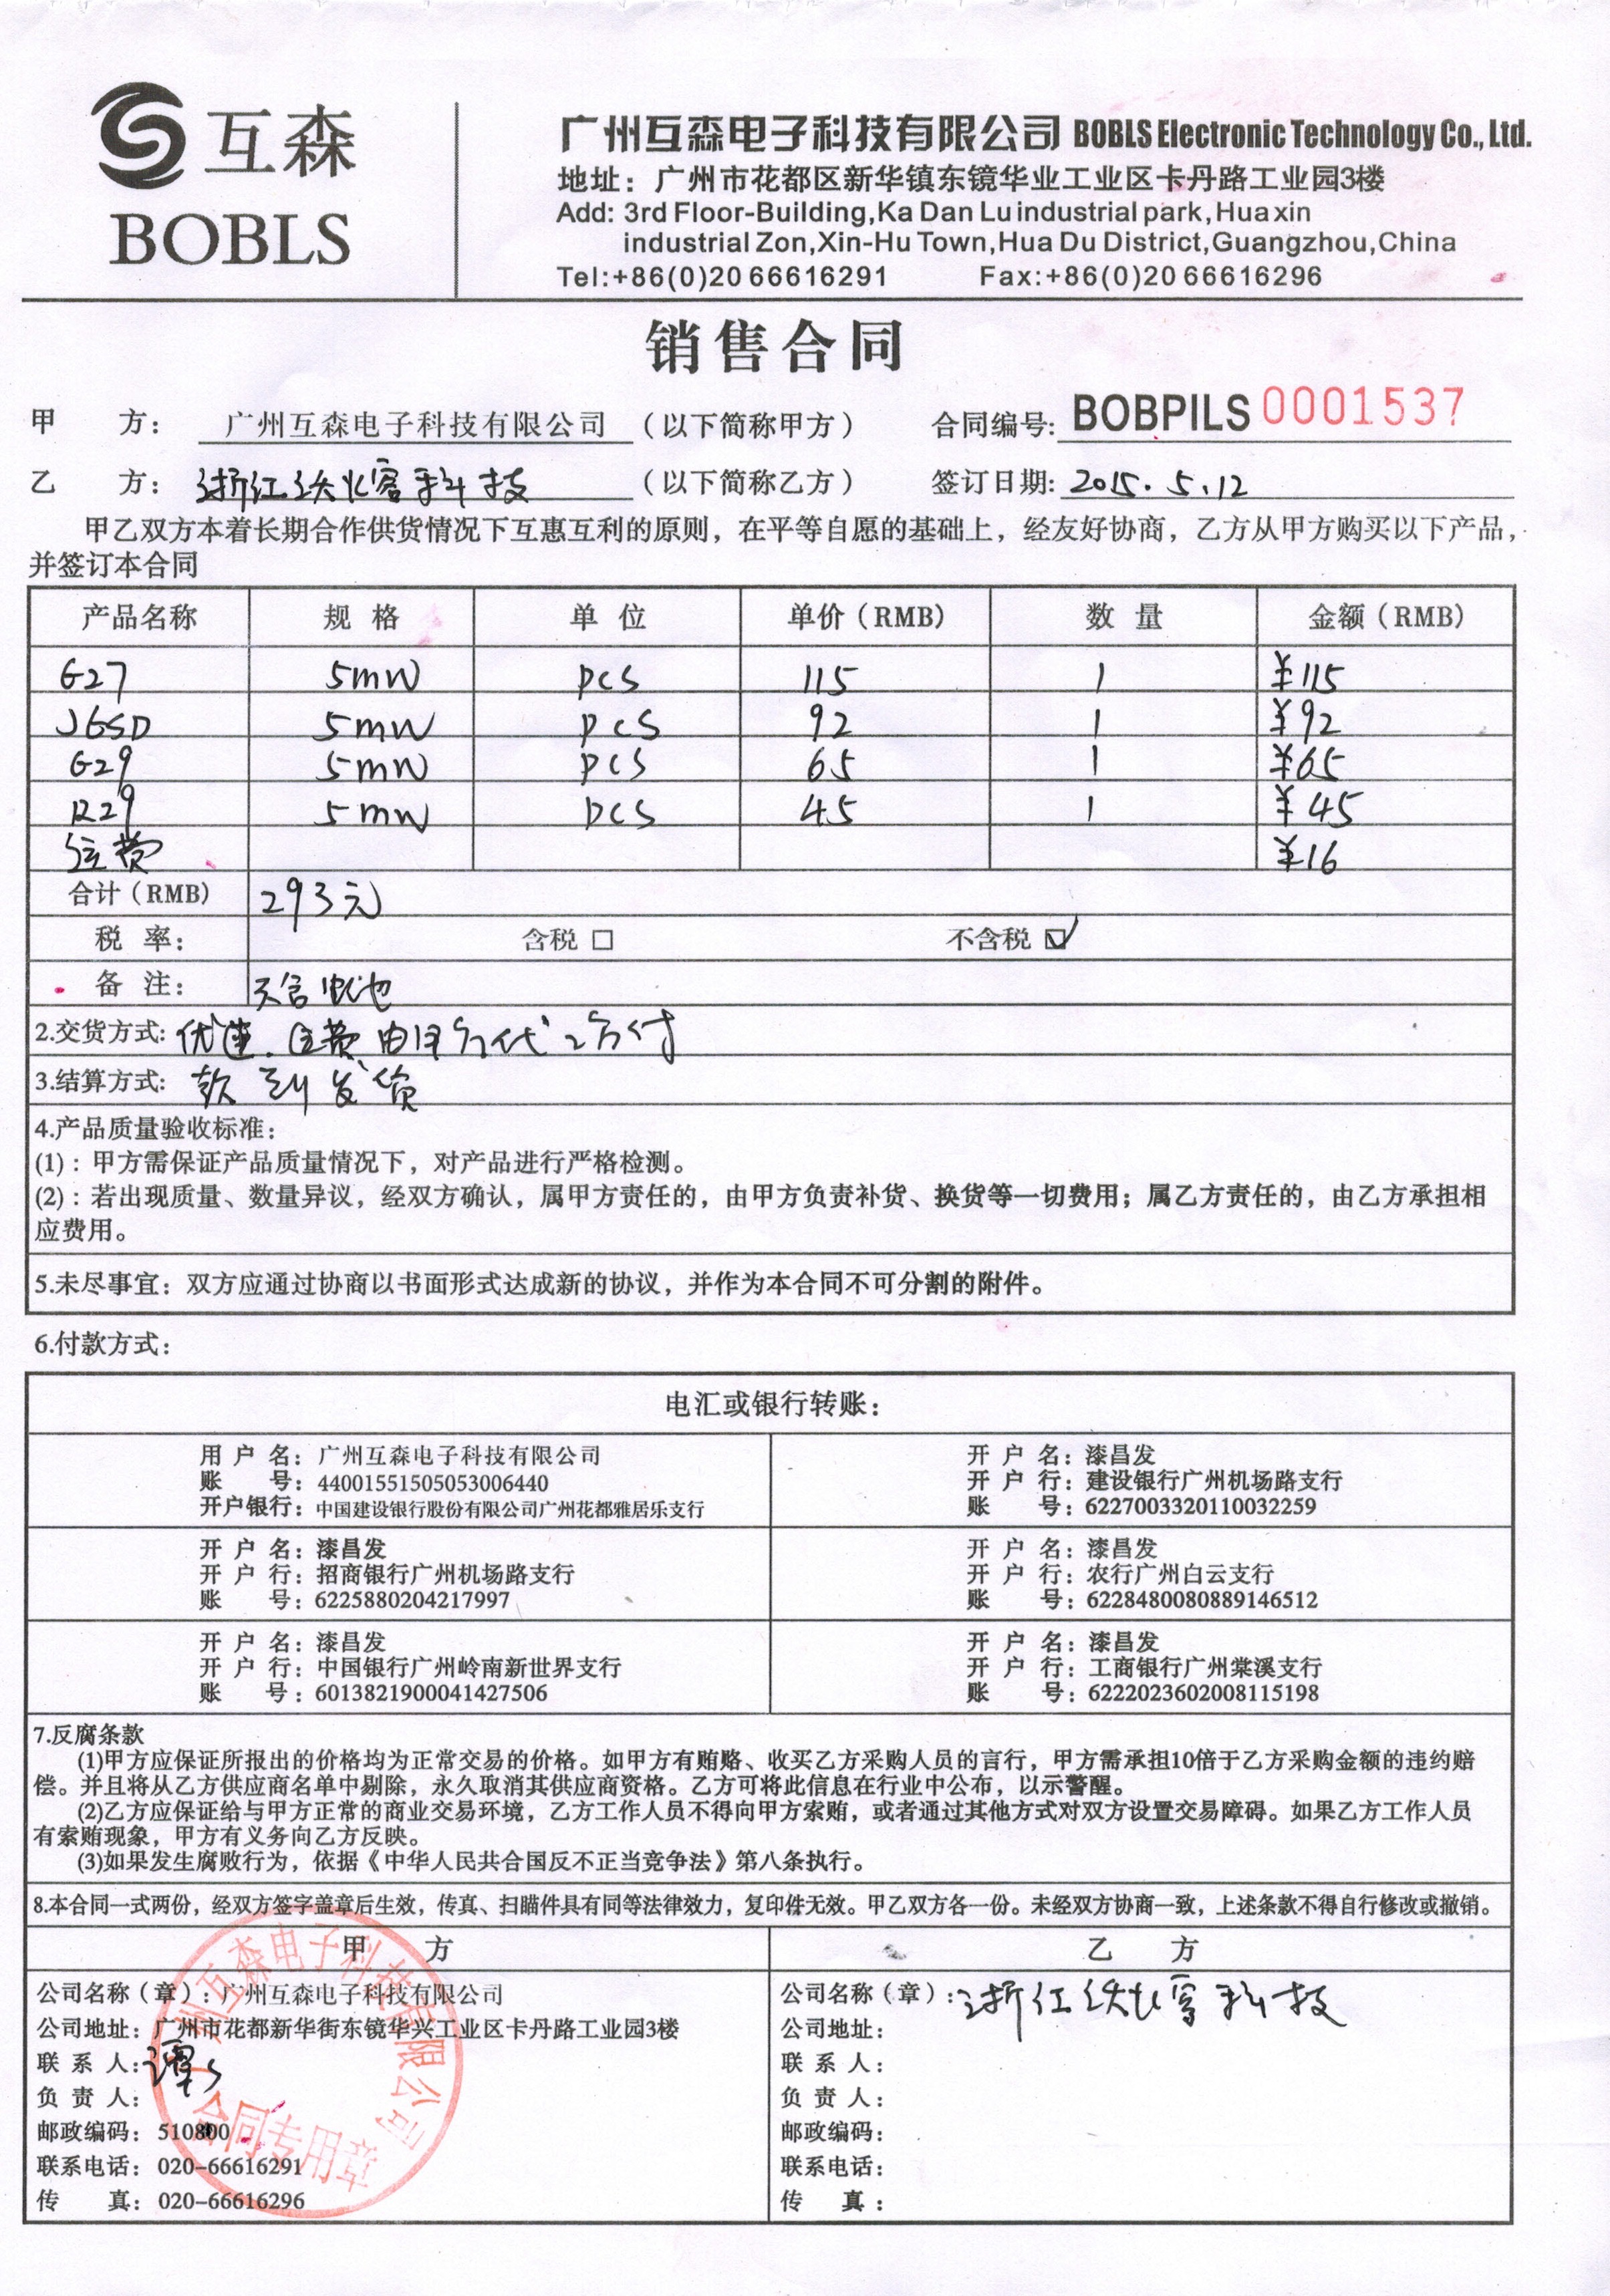 互森
BOBLS
广州互森电子科技有限公司 BOBLS Electronic Technology Co., Ltd.
地址：广州市花都区新华镇东镜华业工业区卡丹路工业园3楼
Add: 3rd Floor-Building,Ka Dan Lu industrial park,Huaxin
industrial Zon,Xin-Hu Town,Hua Du District,Guangzhou,China
Tel:+86(0)20 66616291 Fax:+86(0)20 66616296
销售合同
甲 方： 广州互森电子科技有限公司 （以下简称甲方） 合同编号: BOBPILS 0001537
乙 方： 浙江 科技 （以下简称乙方） 签订日期: 2015.5.12
甲乙双方本着长期合作供货情况下互惠互利的原则，在平等自愿的基础上，经友好协商，乙方从甲方购买以下产品，
并签订本合同
产品名称 规 格 单 位 单价（RMB） 数 量 金额（RMB）
G27 5mW pcs 115 1 ¥115
J6SD 5mW pcs 92 1 ¥92
G29 5mW pcs 65 1 ¥65
R29 5mW pcs 45 1 ¥45
运费 ¥16
合计（RMB） 293元
税 率： 含税 □ 不含税 ☑
备 注： 不含电池
2.交货方式: 优速. 运费由甲方代乙方付
3.结算方式: 款到发货
4.产品质量验收标准：
(1)：甲方需保证产品质量情况下，对产品进行严格检测。
(2)：若出现质量、数量异议，经双方确认，属甲方责任的，由甲方负责补货、换货等一切费用；属乙方责任的，由乙方承担相
应费用。
5.未尽事宜：双方应通过协商以书面形式达成新的协议，并作为本合同不可分割的附件。
6.付款方式：
电汇或银行转账：
用 户 名：广州互森电子科技有限公司
账 号：44001551505053006440
开户银行：中国建设银行股份有限公司广州花都雅居乐支行
开 户 名：漆昌发
开 户 行：建设银行广州机场路支行
账 号：6227003320110032259
开 户 名：漆昌发
开 户 行：招商银行广州机场路支行
账 号：6225880204217997
开 户 名：漆昌发
开 户 行：农行广州白云支行
账 号：6228480080889146512
开 户 名：漆昌发
开 户 行：中国银行广州岭南新世界支行
账 号：6013821900041427506
开 户 名：漆昌发
开 户 行：工商银行广州棠溪支行
账 号：6222023602008115198
7.反腐条款
(1)甲方应保证所报出的价格均为正常交易的价格。如甲方有贿赂、收买乙方采购人员的言行，甲方需承担10倍于乙方采购金额的违约赔
偿。并且将从乙方供应商名单中剔除，永久取消其供应商资格。乙方可将此信息在行业中公布，以示警醒。
(2)乙方应保证给与甲方正常的商业交易环境，乙方工作人员不得向甲方索贿，或者通过其他方式对双方设置交易障碍。如果乙方工作人员
有索贿现象，甲方有义务向乙方反映。
(3)如果发生腐败行为，依据《中华人民共合国反不正当竞争法》第八条执行。
8.本合同一式两份，经双方签字盖章后生效，传真、扫瞄件具有同等法律效力，复印件无效。甲乙双方各一份。未经双方协商一致，上述条款不得自行修改或撤销。
甲 方
公司名称（章）：广州互森电子科技有限公司
公司地址：广州市花都新华街东镜华兴工业区卡丹路工业园3楼
联 系 人：谭
负 责 人：
邮政编码：510800
联系电话：020-66616291
传 真：020-66616296
广州互森电子科技有限公司
合同专用章
乙 方
公司名称（章）：浙江 科技
公司地址：
联 系 人：
负 责 人：
邮政编码：
联系电话：
传 真：